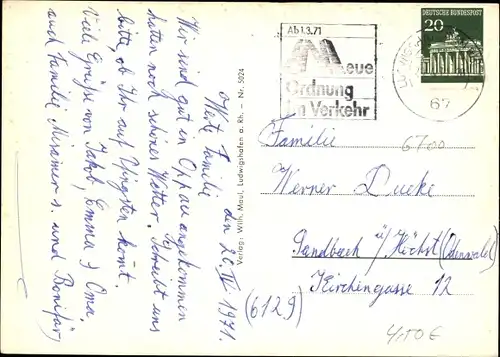 den 20. IV 1971.
Werte Familie
Wir sind gut in Oppau angekommen
hatten noch schönes Wetter. Schreibt uns
bitte, ob Ihr auf Pfingsten kommt.
Viele Grüße von Jakob, Emma & Oma,
auch Familie s. und Bonifär,
Verlag: Wilh. Maul, Ludwigshafen a. Rh. – Nr. 5024
Ab 1.3.71
Neue
Ordnung
im Verkehr
DEUTSCHE BUNDESPOST
20
67
6700
Familie
Werner Ducke
Sandbach ü/Höchst (Odenwald)
(6129)
Kirchengasse 12